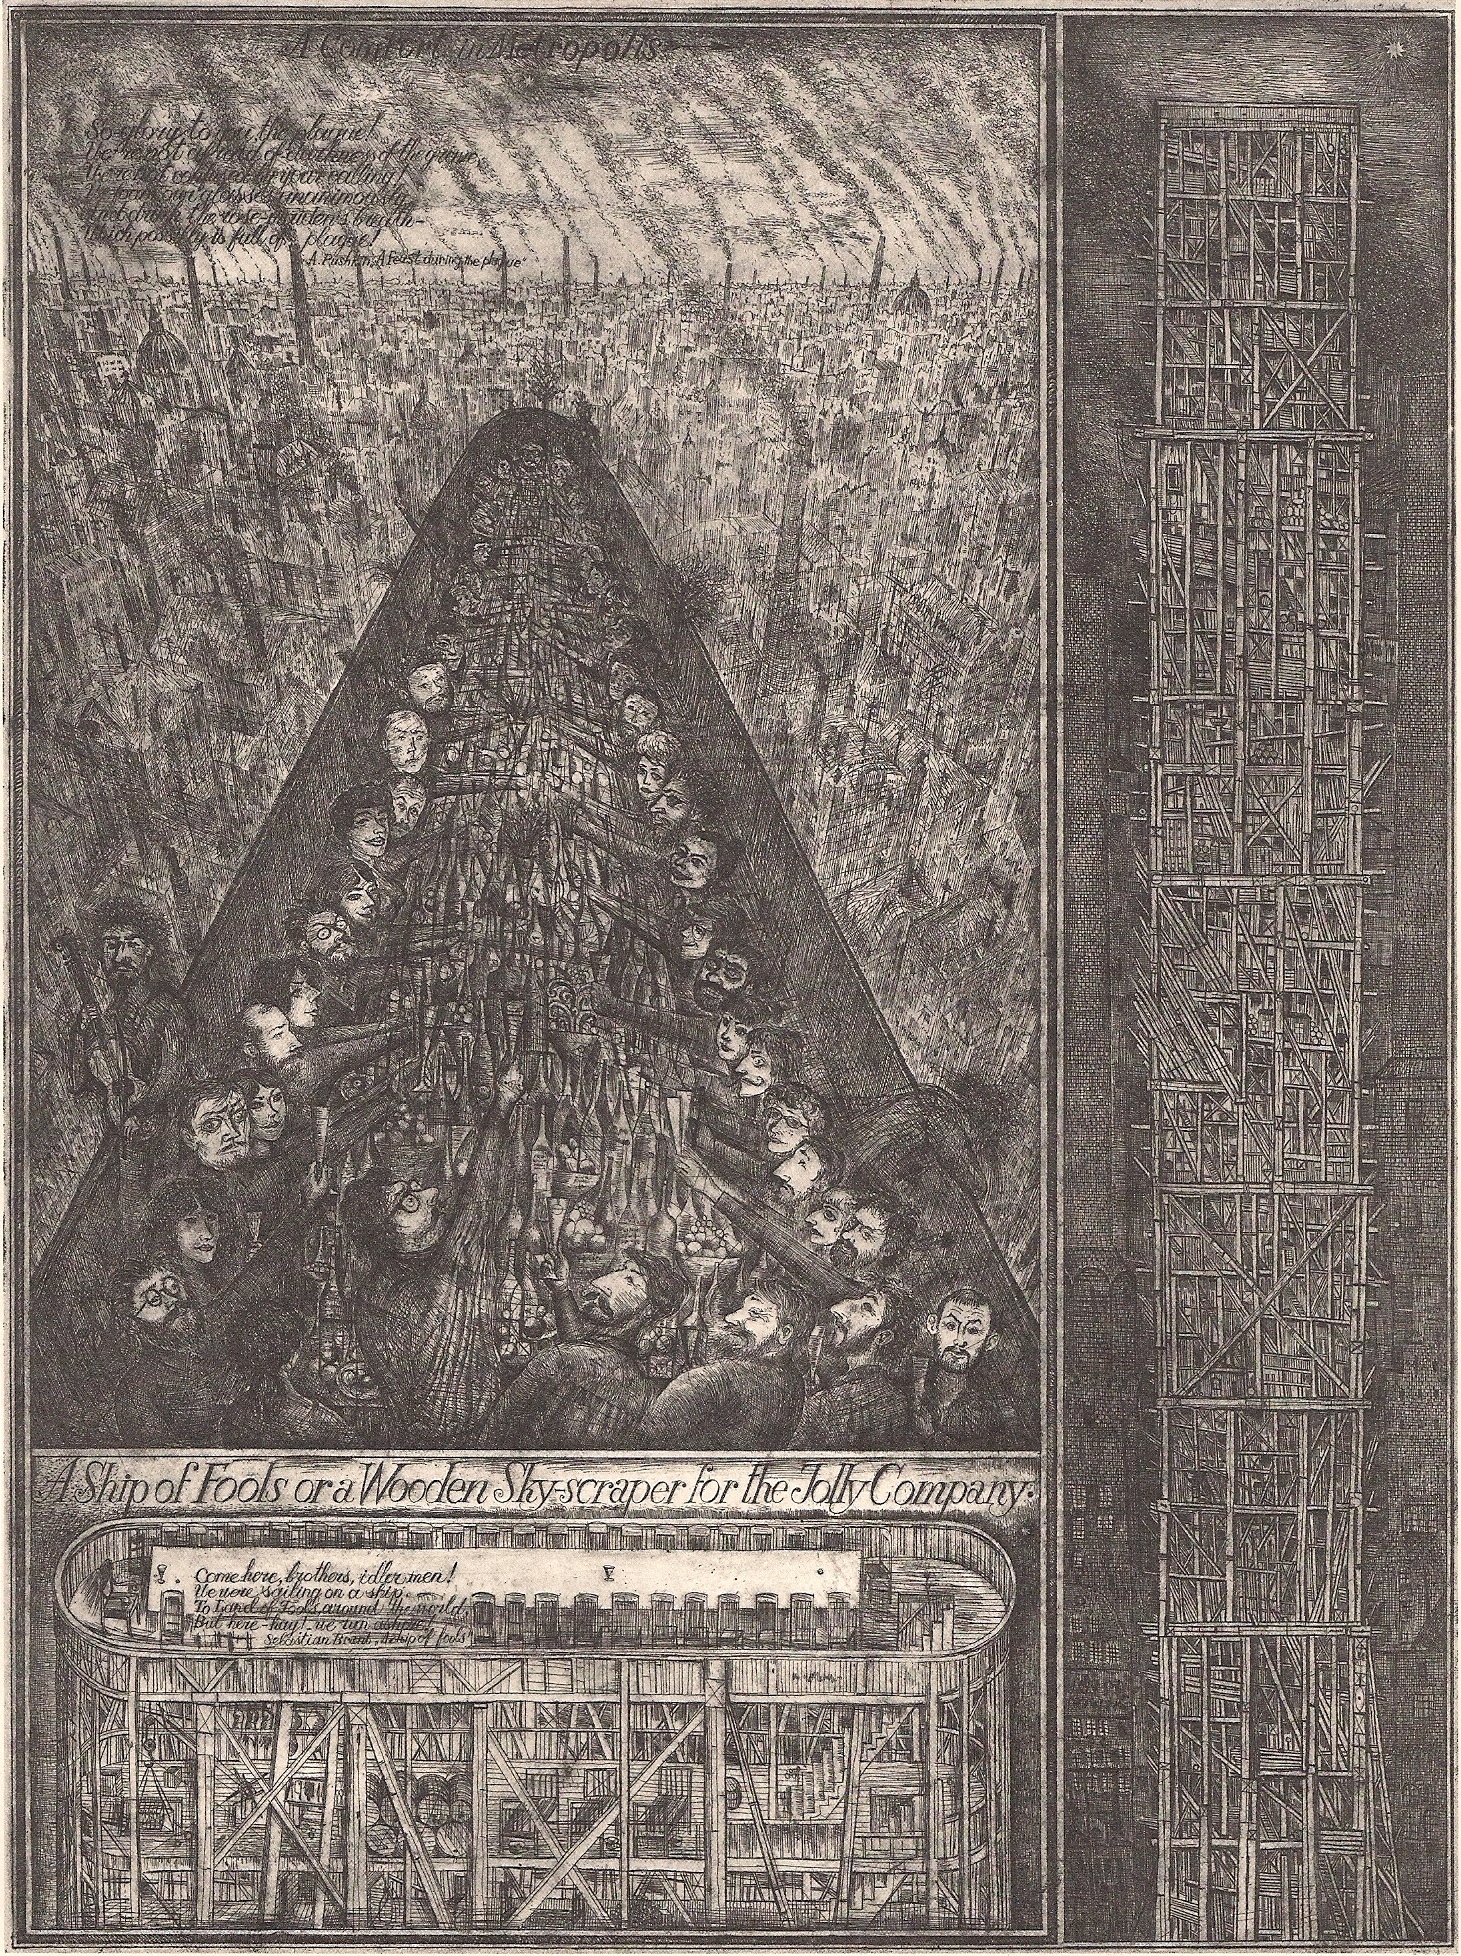 A Comfort in Metropolis
So glory to you, the plague!
of darkness of the grave,
your calling!
our glasses unanimously
And drink the rose-maiden's breath-
Which possibly is full of plague!
A. Pushkin "A feast during the plague"
A Ship of Fools or a Wooden Sky-scraper for the Jolly Company.
Come here, brothers, idler men!
We were sailing on a ship
To Land of Fools around the world,
But here - hay! we run ashore
Sebastian Brant, "A ship of fools"